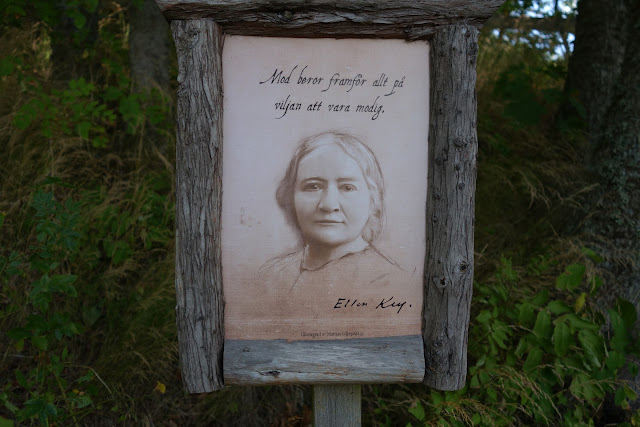 Mod beror framför allt på
viljan att vara modig.
Ellen Key.